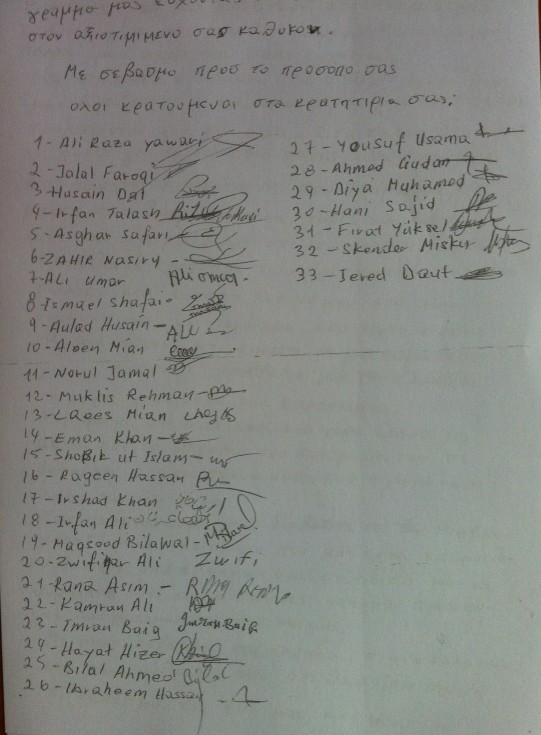 γραμμα μας
στον αξιοτιμιμενο σας καθυκον.
Με σεβασμο προσ το προσοπο σας
ολοι κρατουμενοι στα κρατητιρια σας;
1- Ali Raza yawari
2- Jalal Faroqi
3- Husain Dal
4- Irfan Talash
5- Asghar Safari
6- ZAHIR Nasiry -
7- ALi umar Ali omar.
8- Ismael Shafai-
9- Aulad Husain- ALU
10- Aloen Mian
11- Norul Jamal
12- Muklis Rehman-
13- LQees Mian
14- Eman Khan-
15- Shobik ut Islam-
16- Raqeen Hassan
17- Irshad Khan
18- Irfan Ali
19- Maqsood Bilawal-
20- Zwifiqar Ali Zwifi
21- Rana Asim.-
22- Kamran Ali
23- Imran Baig Imran Baig
24- Hayat Hizer
25- Bilal Ahmed Bilal
26- Ibraheem Hassan
27- Yousuf Usama
28- Ahmed Gudan
29- Diya Muhamed
30- Hani Sajid
31- Firat Yüksel
32- Skender Miskir
33- Jered Daut